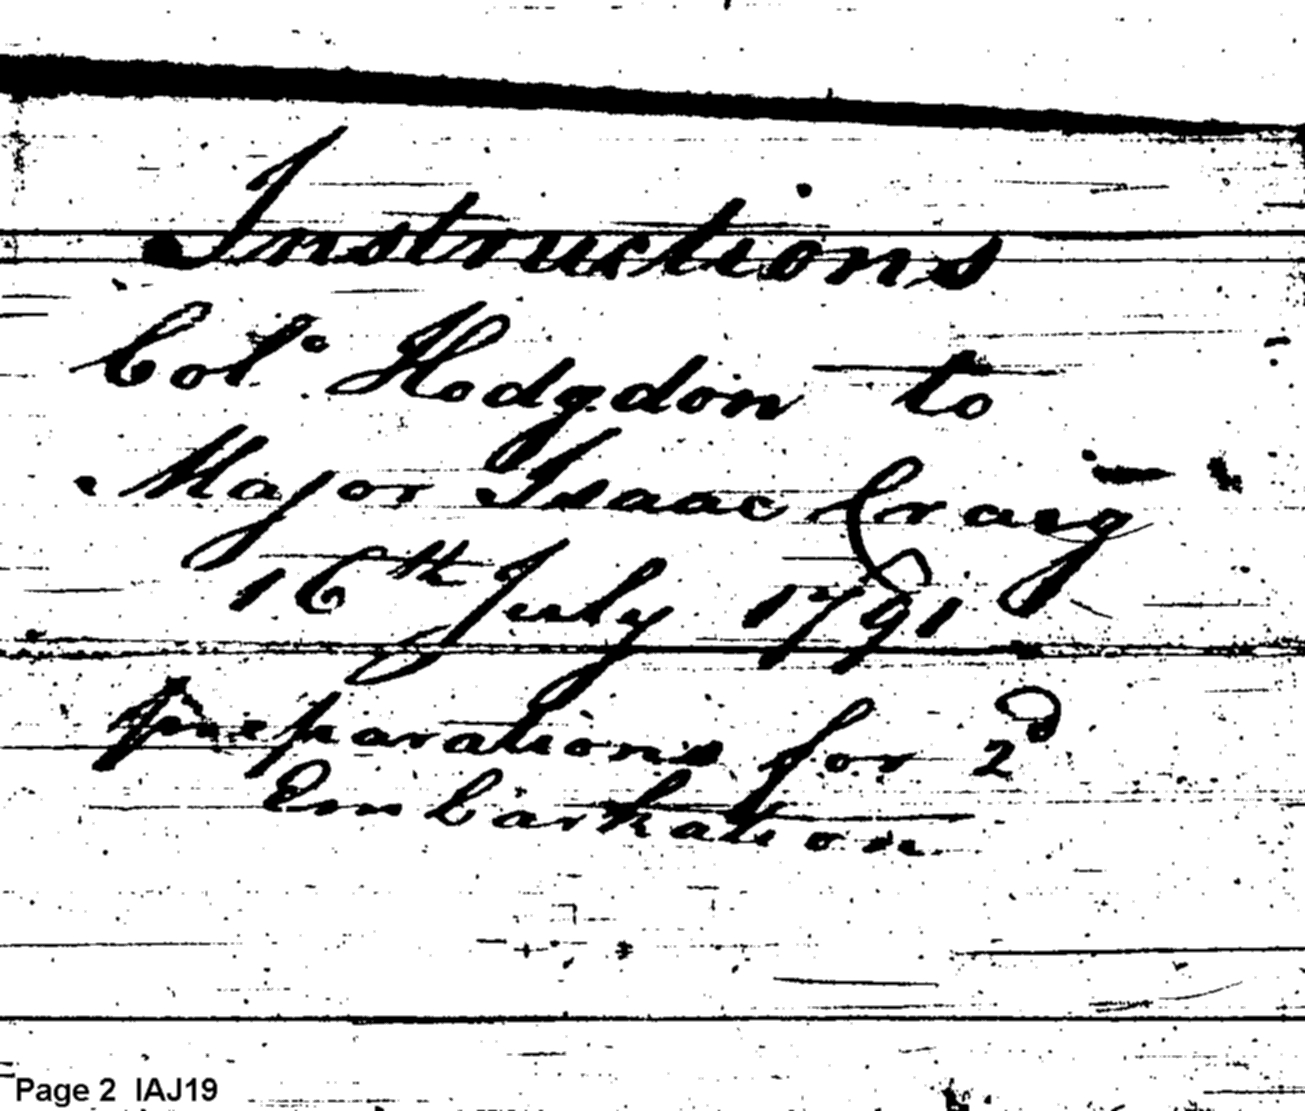 Instructions
Col.o Hodgdon to
Major Isaac Craig
16th July 1791
preparations for 2d
Embarkation
Page 2 IAJ19